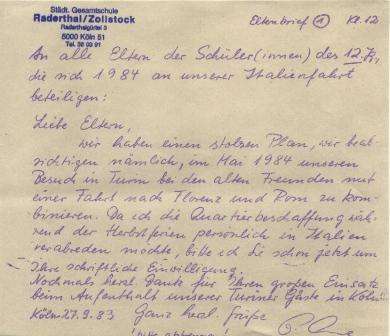 Städt. Gesamtschule
Raderthal/Zollstock
Raderthalgürtel 3
5000 Köln 51
Tel. 38 03 91
Elternbrief 1 Kl. 12
An alle Eltern der Schüler(innen) des 12. Jg.,
die sich 1984 an unserer Italienfahrt
beteiligen:
Liebe Eltern,
wir haben einen stolzen Plan, wir beab-
sichtigen nämlich, im Mai 1984 unseren
Besuch in Turin bei den alten Freunden mit
einer Fahrt nach Florenz und Rom zu kom-
binieren. Da ich die Quartierbeschaffung wäh-
rend der Herbstferien persönlich in Italien
verabreden möchte, bitte ich Sie schon jetzt um
Ihre schriftliche Einwilligung.
Nochmals herzl. Dank für Ihren großen Einsatz
beim Aufenthalt unserer Turiner Gäste in Köln!
Köln 27.9.83 Ganz herzl. Grüße